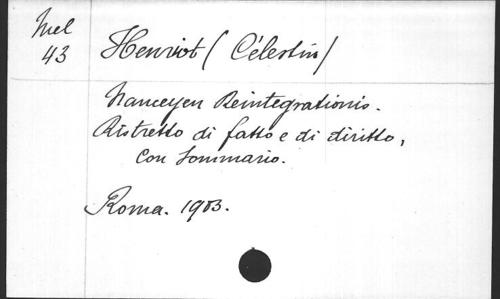 Mel
43
Henriot (Célestin)
Nanceyen Reintegrationis.
Ristretto di fatto e di diritto,
con Sommario.
Roma. 1903.